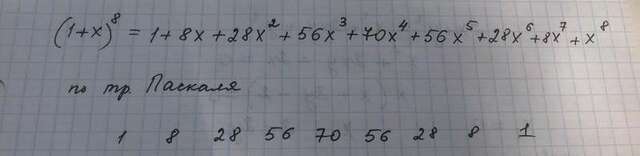 (1+x)⁸ = 1+8x+28x²+56x³+70x⁴+56x⁵+28x⁶+8x⁷+x⁸
по тр. Паскаля
1 8 28 56 70 56 28 8 1